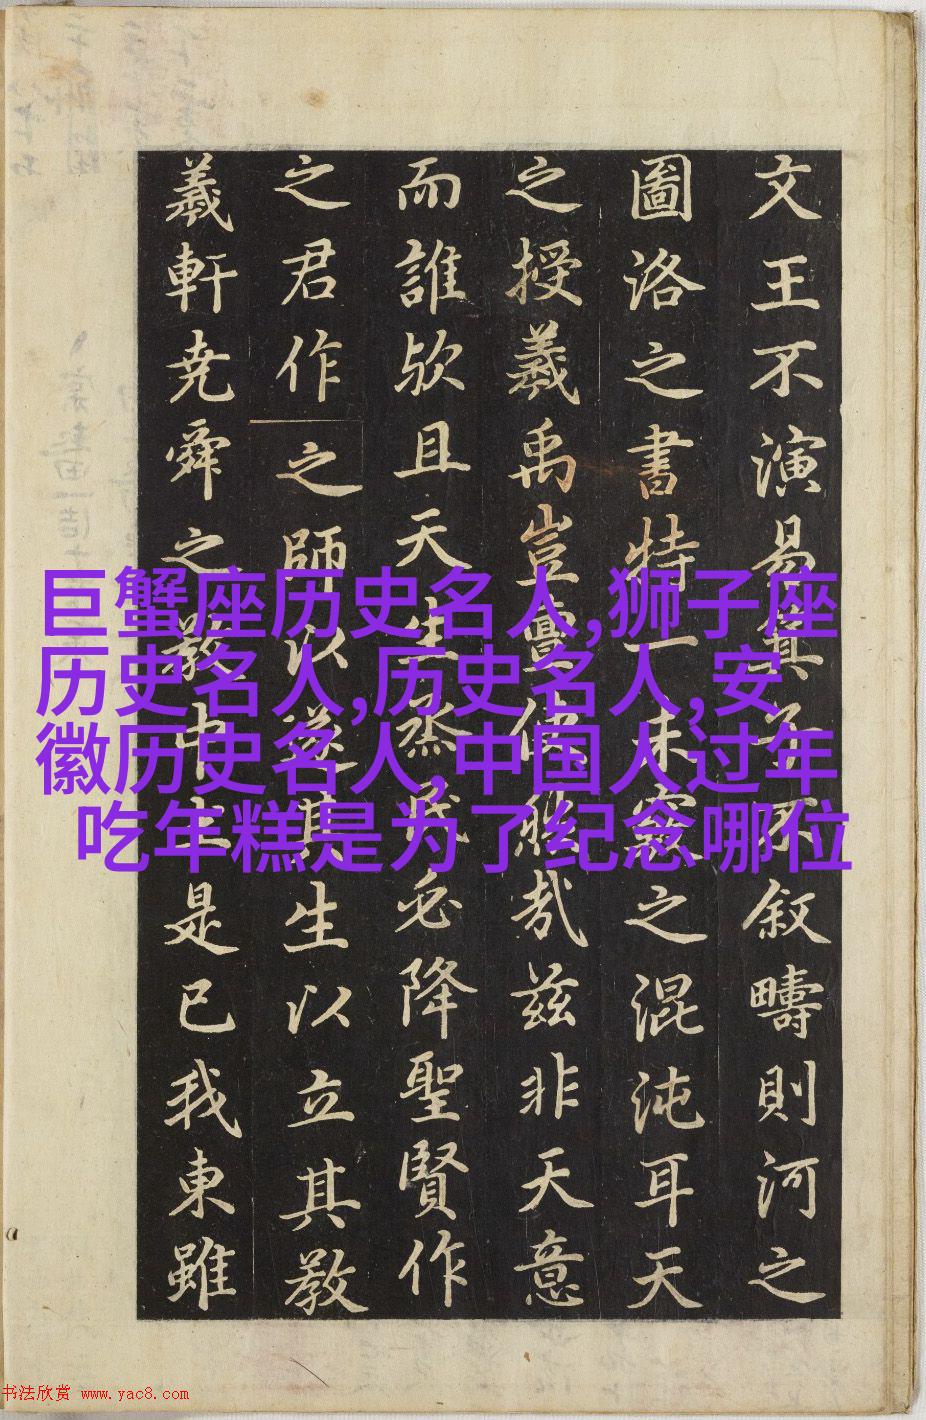 文王不演易箕子不叙疇則河之
圖洛之書特一未之混沌耳天
之授羲禹豈亶使然哉兹非天意
而誰歟且天生烝民必降聖賢作
之君作之師以遂其生以立其教
羲軒尭舜之教中土是已我東雖
巨蟹座历史名人,狮子座
历史名人,历史名人,安
徽历史名人,中国人过年
吃年糕是为了纪念哪位
书法欣赏 www.yac8.com